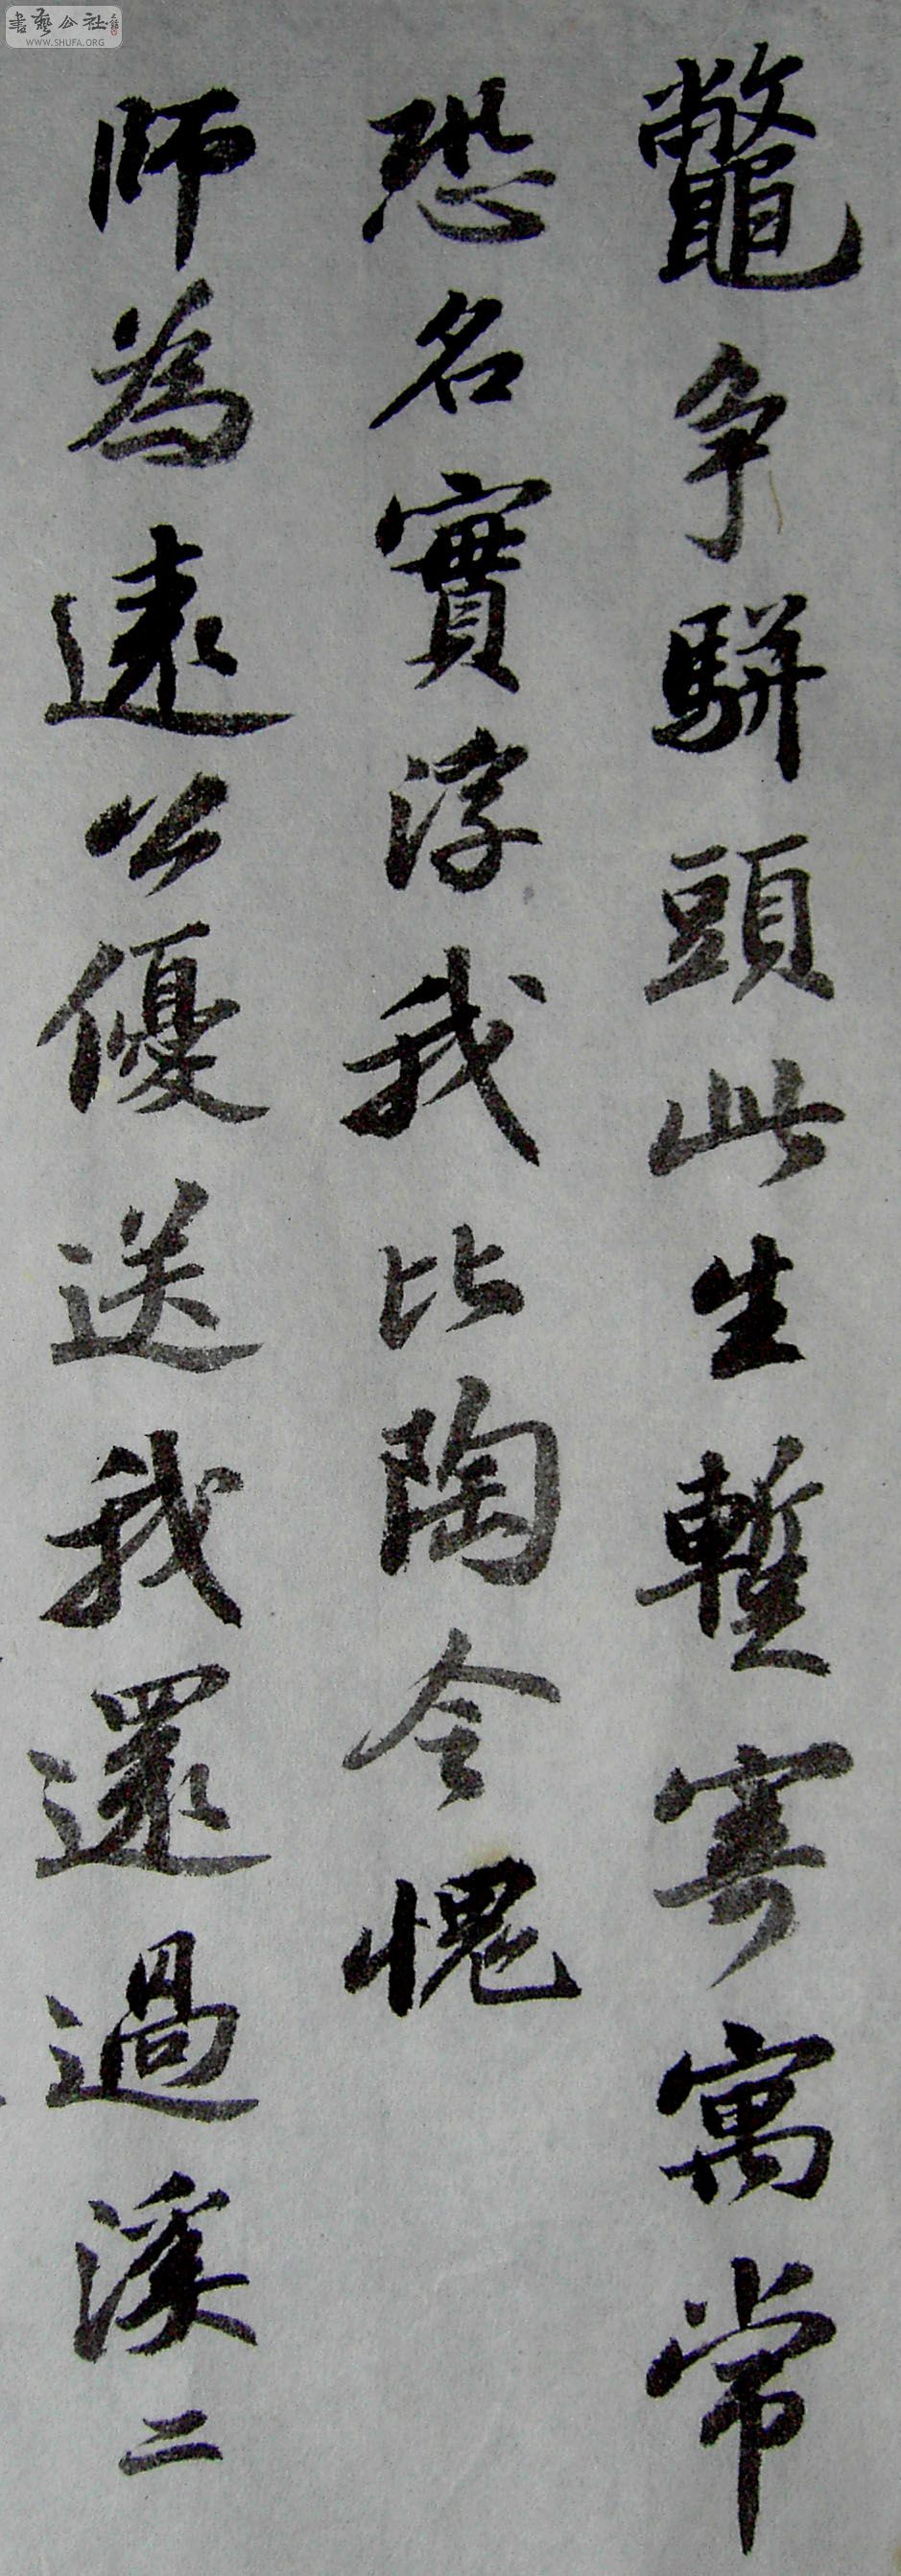 鼈争駢頭此生暫寄寓常
恐名實浮我比陶令愧
師為遠公優送我還過溪二
書藝公社
WWW.SHUFA.ORG